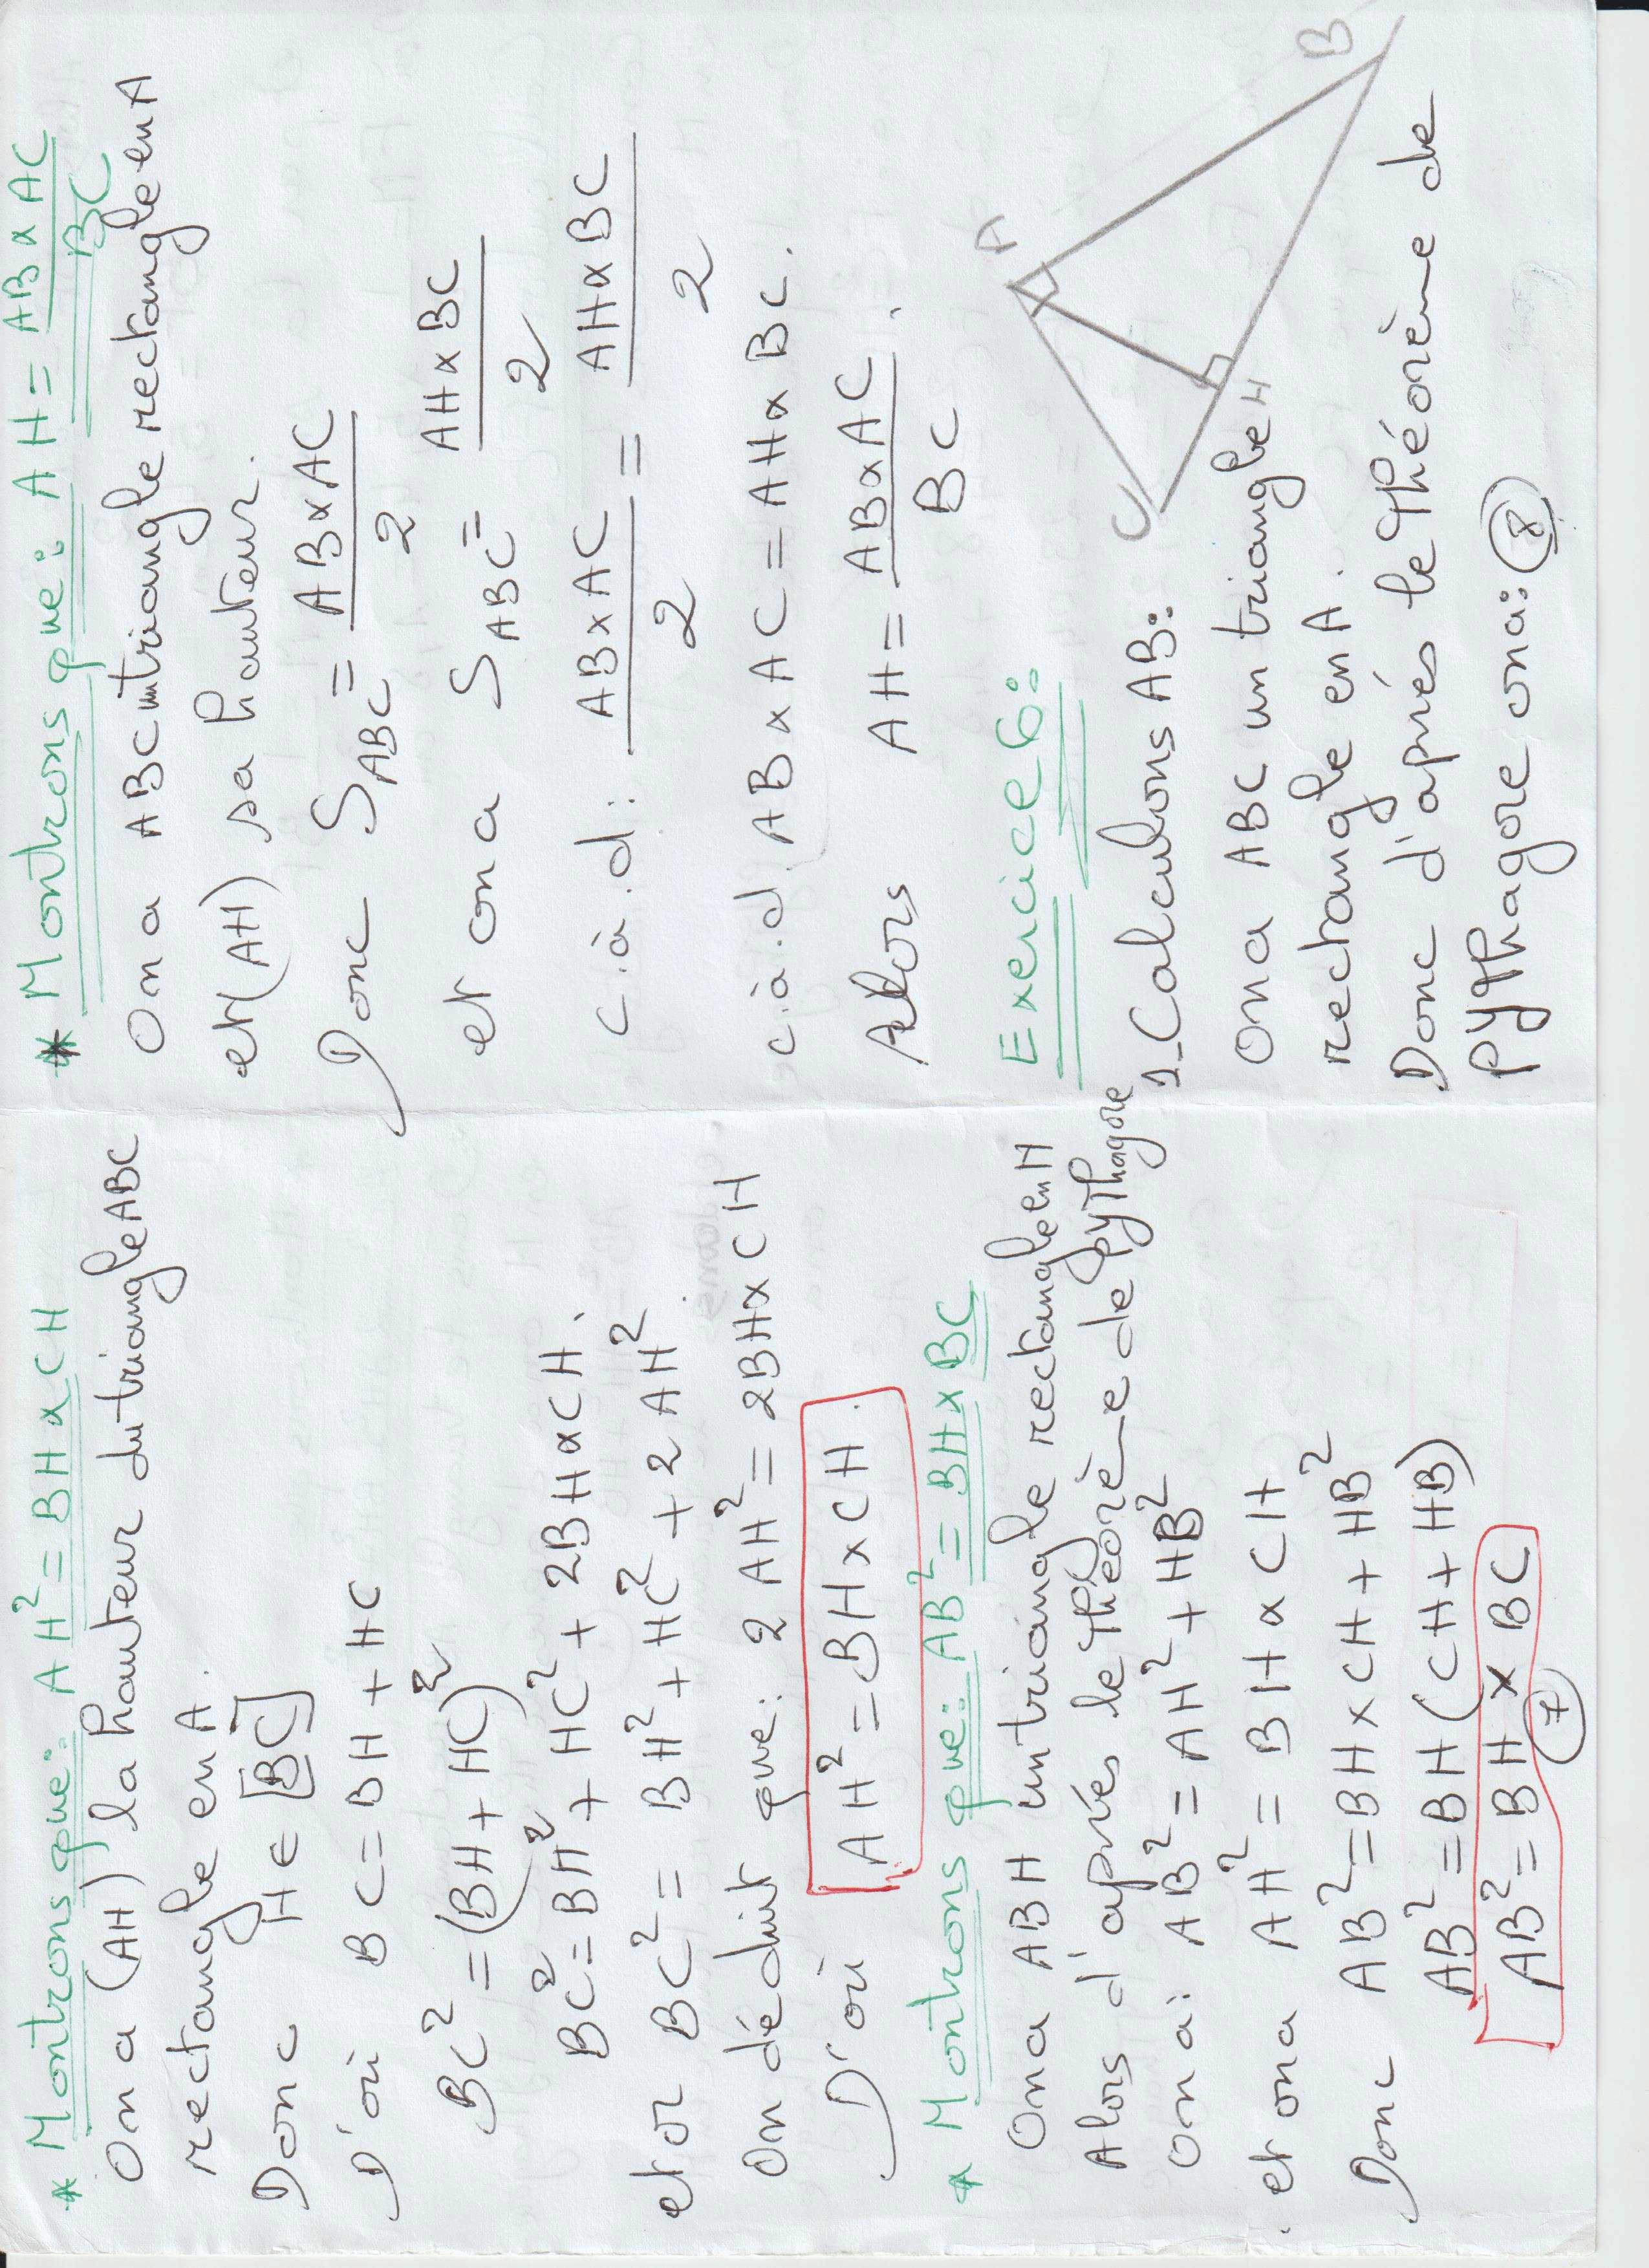 * Montrons que: AH² = BH x CH
On a (AH) la hauteur du triangle ABC
rectangle en A.
Donc H ∈ [BC]
D'où BC = BH + HC
BC² = (BH + HC)²
BC² = BH² + HC² + 2BH x CH.
et or BC² = BH² + HC² + 2 AH²
On déduit que: 2 AH² = 2BH x CH
D'où AH² = BH x CH.
* Montrons que: AB² = BH x BC
On a ABH un triangle rectangle en H
Alors d'aprés le théorème de pythagore
on a: AB² = AH² + HB²
et on a AH² = BH x CH
Donc AB² = BH x CH + HB²
AB² = BH (CH + HB)
AB² = BH x BC
7
* Montrons que: AH = AB x AC
BC
On a ABC un triangle rectangle en A
et (AH) sa hauteur.
Donc S ABC = AB x AC
2
et on a S ABC = AH x BC
2
c.à.d: AB x AC = AH x BC
2 2
c.à.d. AB x AC = AH x BC.
Alors AH = AB x AC.
BC
Exercice 6:
1_Calculons AB:
On a ABC un triangle
rectangle en A.
Donc d'aprés le théorème de
pythagore on a:
8
A
B
C
H